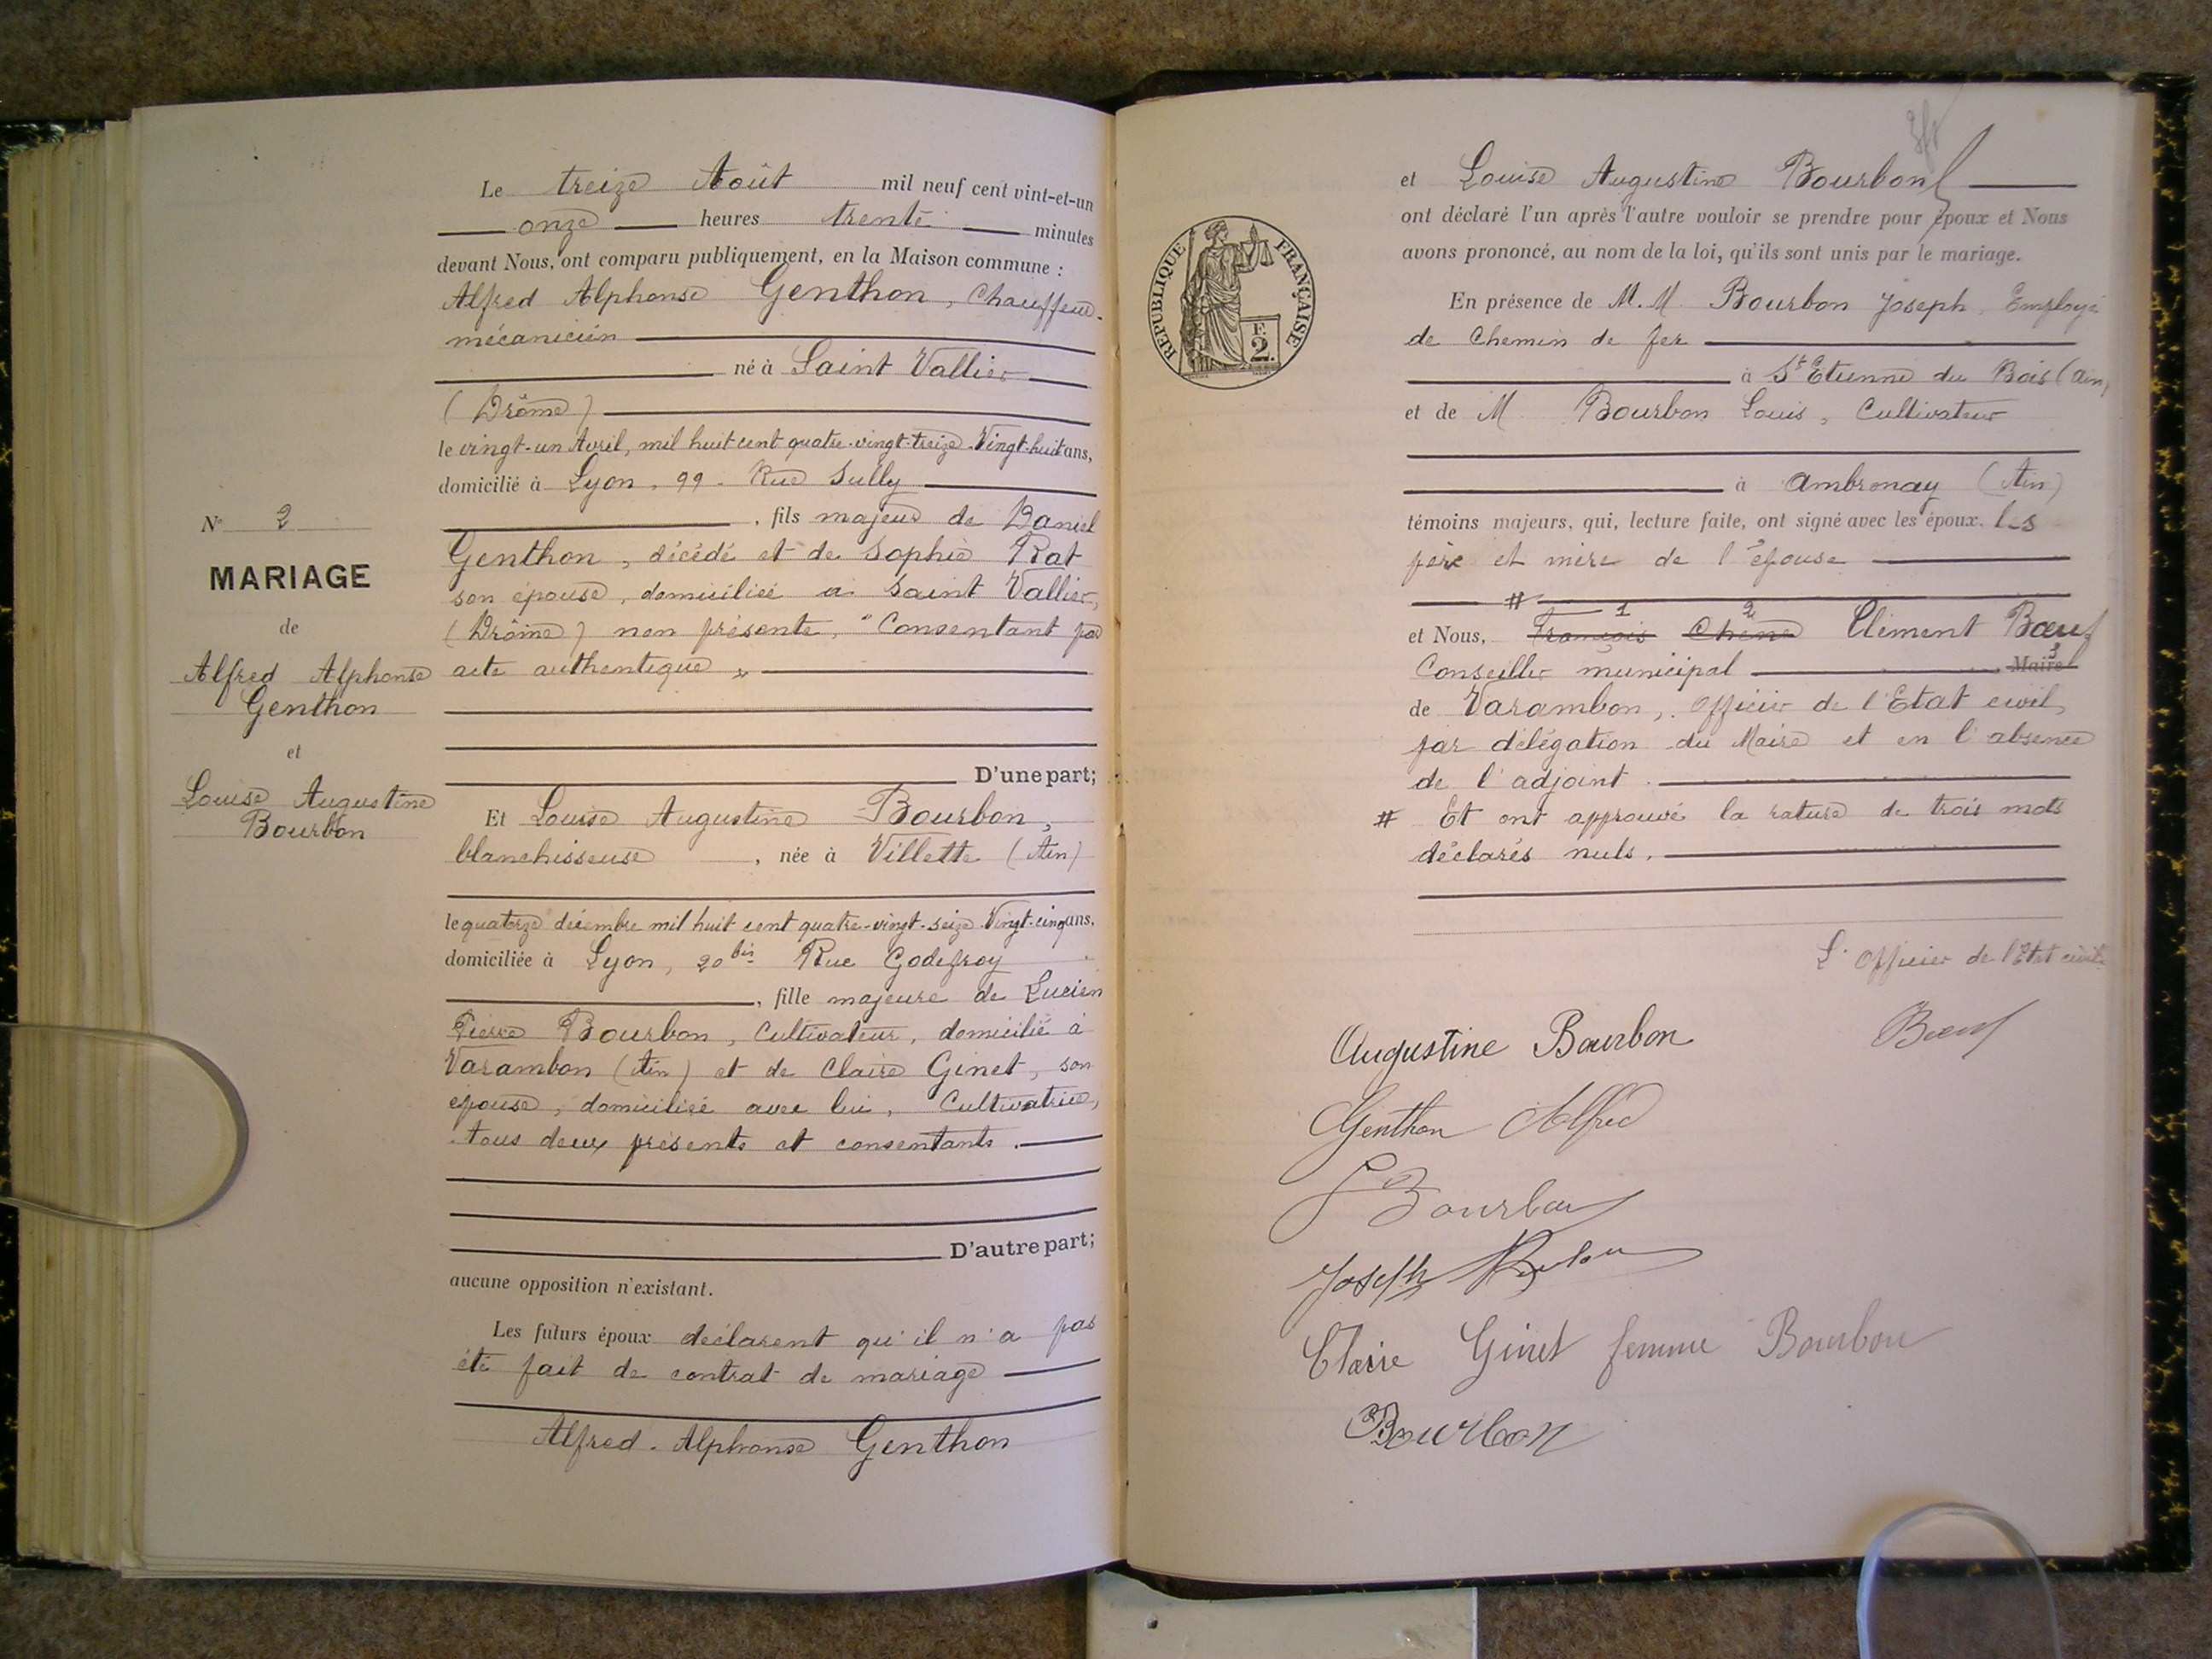 Le treize Août mil neuf cent vint-et-un
onze heures trente minutes
devant Nous, ont comparu publiquement, en la Maison commune :
Alfred Alphonse Genthon, Chauffeur-
mécanicien
né à Saint Vallier
(Drôme)
le vingt-un Avril, mil huit cent quatre-vingt-treize. Vingt-huit ans,
domicilié à Lyon, 99. Rue Sully
, fils majeur de Daniel
Genthon, décédé et de Sophie Rat
son épouse, domiciliée à Saint Vallier,
(Drôme) non présente, "Consentant par
acte authentique"
D'une part;
N° 2
MARIAGE
de
Alfred Alphonse
Genthon
et
Louise Augustine
Bourbon
Et Louise Augustine Bourbon,
blanchisseuse, née à Villette (Ain)
le quatorze décembre mil huit cent quatre-vingt-seize. Vingt-cinq ans,
domiciliée à Lyon, 20 bis Rue Godefroy
, fille majeure de Lucien
Pierre Bourbon, Cultivateur, domicilié à
Varambon (Ain) et de Claire Ginet, son
épouse, domiciliée avec lui, Cultivatrice,
tous deux présents et consentants.
D'autre part;
aucune opposition n'existant.
Les futurs époux déclarent qu'il n'a pas
été fait de contrat de mariage
Alfred-Alphonse Genthon
et Louise Augustine Bourbon
ont déclaré l'un après l'autre vouloir se prendre pour époux et Nous
avons prononcé, au nom de la loi, qu'ils sont unis par le mariage.
REPUBLIQUE FRANÇAISE
F.
2.
En présence de M.M. Bourbon Joseph, Employé
de Chemin de fer
à St Etienne du Bois (Ain)
et de M Bourbon Louis, Cultivateur
à Ambronay (Ain)
témoins majeurs, qui, lecture faite, ont signé avec les époux. les
père et mère de l'épouse
#
et Nous, François 1 Chene 2 Clément Bœuf
Conseiller municipal Maire 3
de Varambon, Officier de l'Etat civil,
par délégation du Maire et en l'absence
de l'adjoint.
# Et ont approuvé la rature de trois mots
déclarés nuls.
L'Officier de l'Etat civil
Augustine Bourbon
Bœuf
Genthon Alfred
Bourbon
Joseph
Claire Ginet femme Bourbon
Bourbon